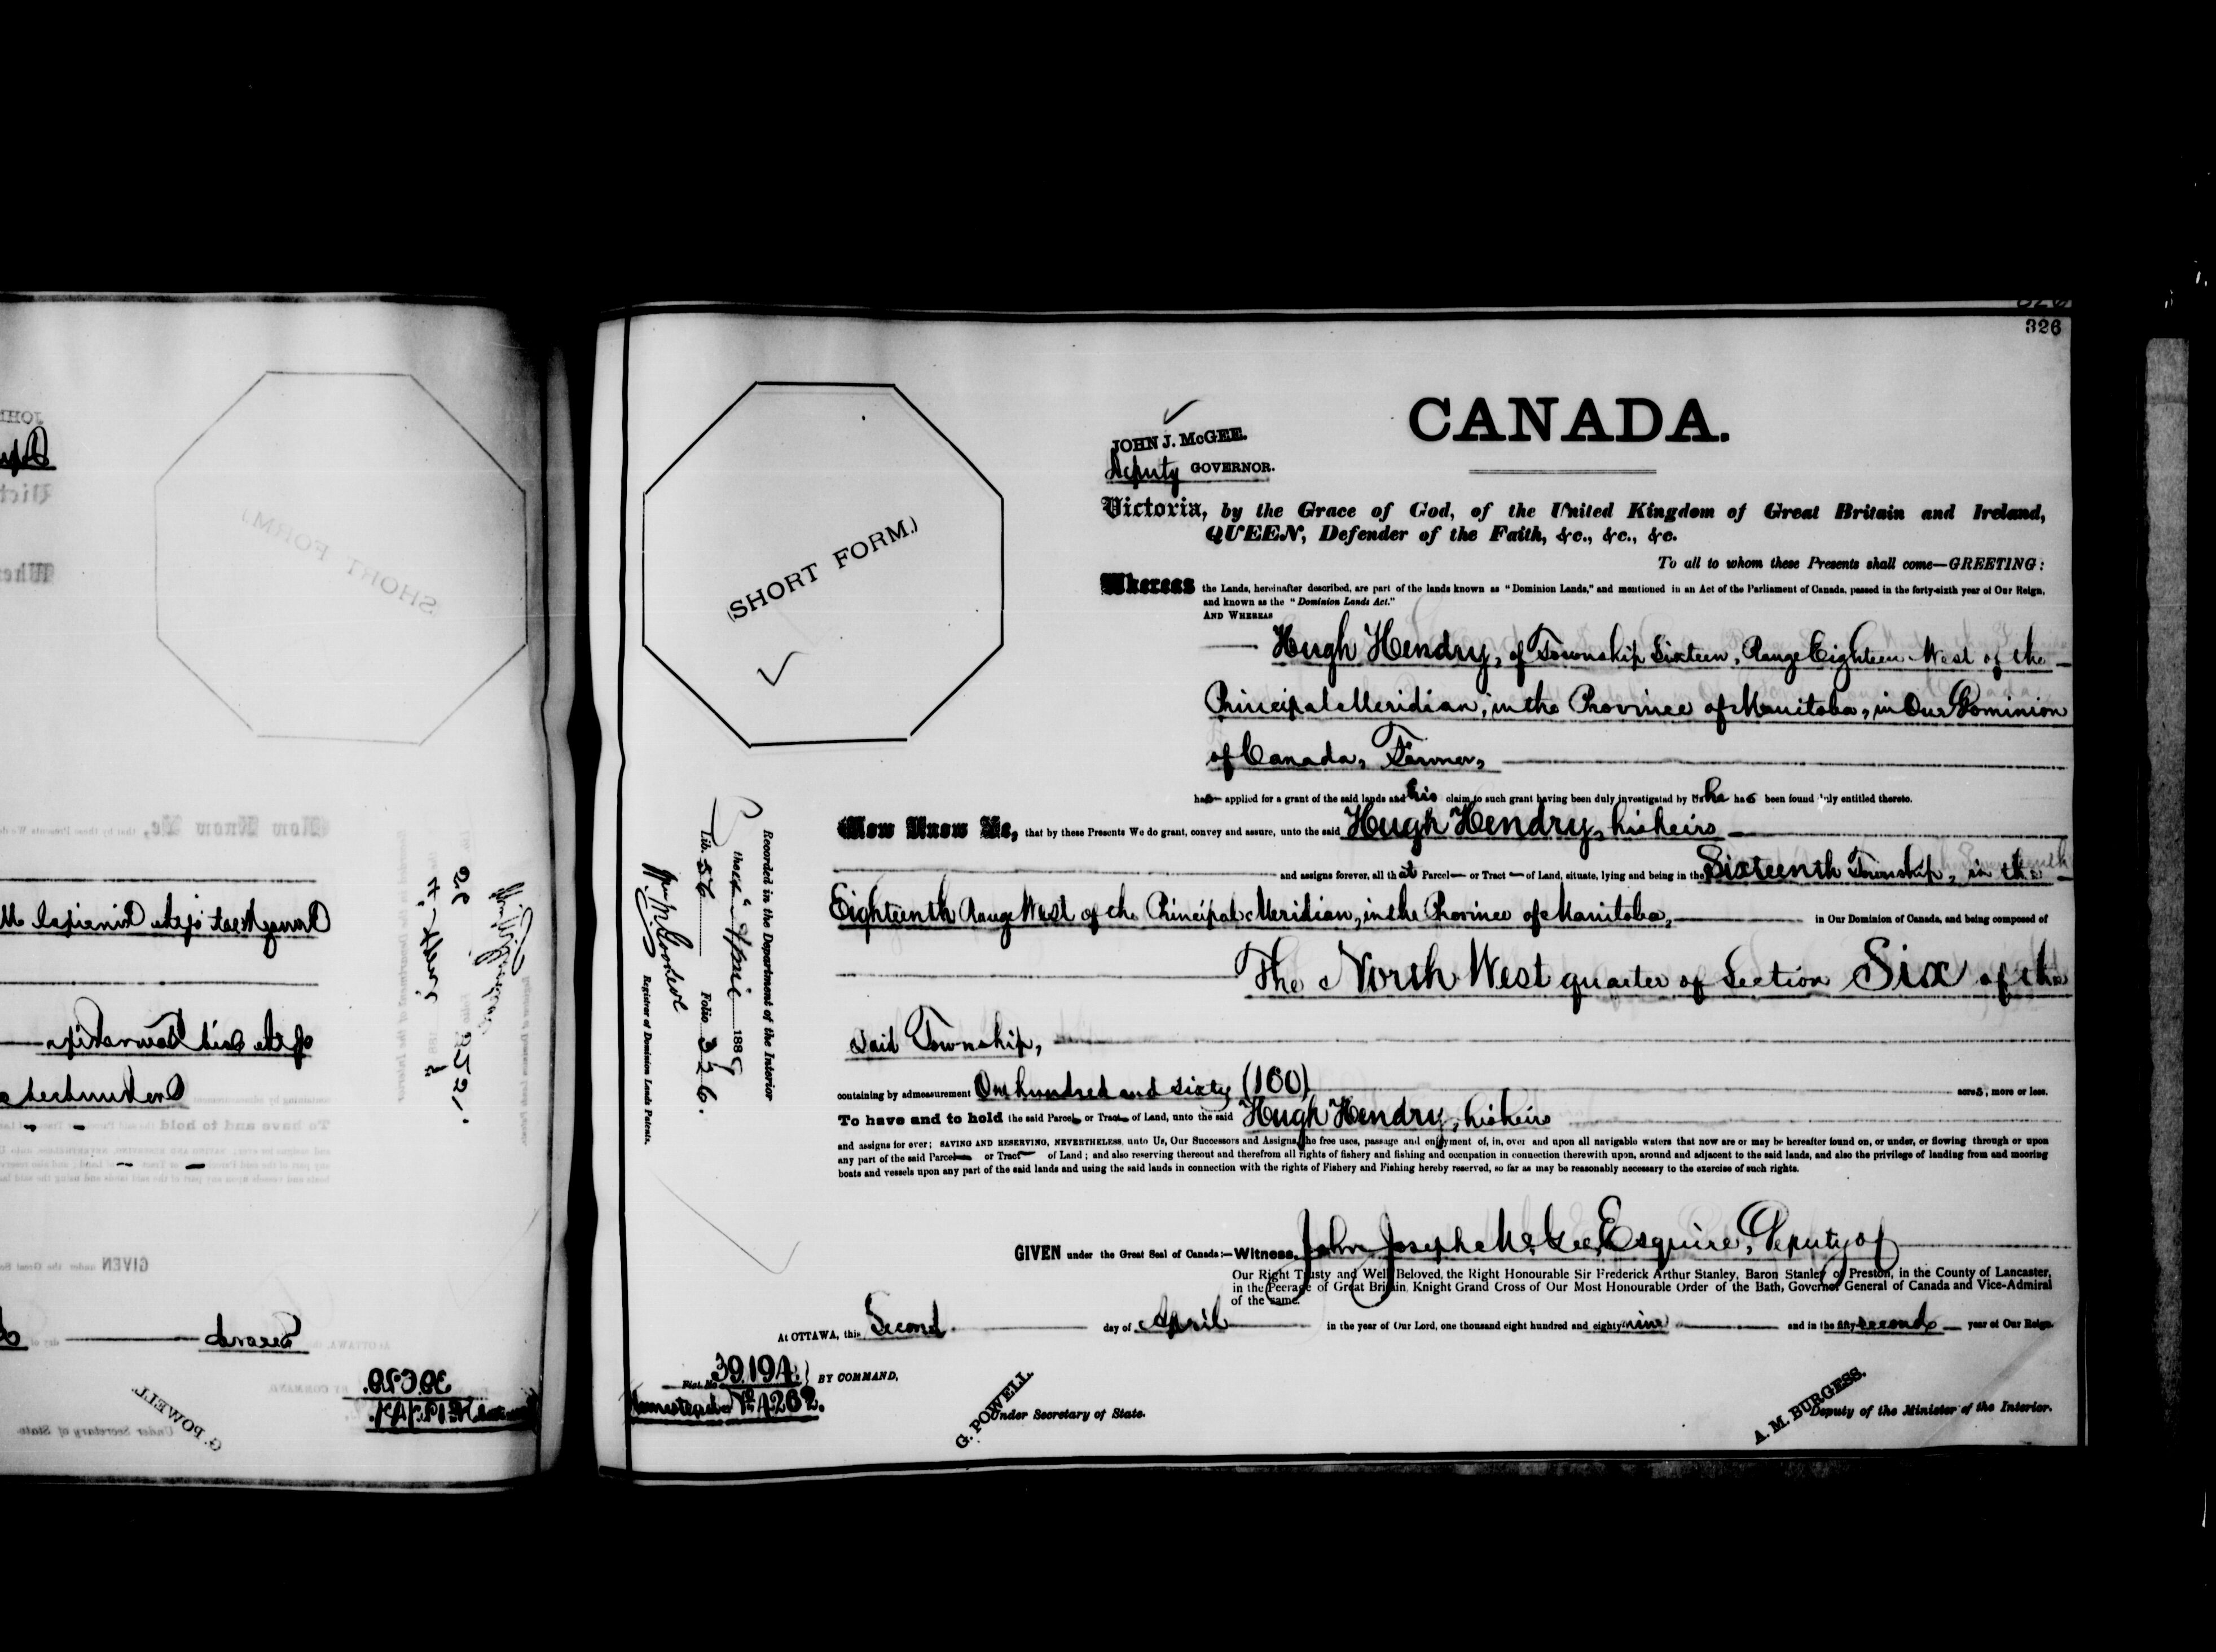 326
CANADA.
JOHN J. McGEE.
Deputy GOVERNOR.
(SHORT FORM.)
Victoria, by the Grace of God, of the United Kingdom of Great Britain and Ireland,
QUEEN, Defender of the Faith, &c., &c., &c.
To all to whom these Presents shall come—GREETING:
Whereas the Lands, hereinafter described, are part of the lands known as "Dominion Lands," and mentioned in an Act of the Parliament of Canada, passed in the forty-sixth year of Our Reign,
and known as the "Dominion Lands Act."
AND WHEREAS
Hugh Hendry, of Township Sixteen, Range Eighteen West of the
Principal Meridian, in the Province of Manitoba, in Our Dominion
of Canada, Farmer,
has applied for a grant of the said lands and his claim to such grant having been duly investigated by Us he has been found duly entitled thereto.
Now Know Ye, that by these Presents We do grant, convey and assure, unto the said Hugh Hendry, his heirs
and assigns forever, all that Parcel or Tract of Land, situate, lying and being in the Sixteenth Township, in the
Eighteenth Range West of the Principal Meridian, in the Province of Manitoba, in Our Dominion of Canada, and being composed of
The North West quarter of Section Six of the
said Township,
containing by admeasurement One hundred and sixty (160) acres, more or less.
To have and to hold the said Parcel or Tract of Land, unto the said Hugh Hendry, his heirs
and assigns for ever; SAVING AND RESERVING, NEVERTHELESS, unto Us, Our Successors and Assigns, the free uses, passage and enjoyment of, in, over and upon all navigable waters that now are or may be hereafter found on, or under, or flowing through or upon
any part of the said Parcel or Tract of Land; and also reserving thereout and therefrom all rights of fishery and fishing and occupation in connection therewith upon, around and adjacent to the said lands, and also the privilege of landing from and mooring
boats and vessels upon any part of the said lands and using the said lands in connection with the rights of Fishery and Fishing hereby reserved, so far as may be reasonably necessary to the exercise of such rights.
GIVEN under the Great Seal of Canada:—Witness, John Joseph McGee, Esquire, Deputy of
Our Right Trusty and Well Beloved, the Right Honourable Sir Frederick Arthur Stanley, Baron Stanley of Preston, in the County of Lancaster,
in the Peerage of Great Britain, Knight Grand Cross of Our Most Honourable Order of the Bath, Governor General of Canada and Vice-Admiral
of the same.
At OTTAWA, this Second day of April in the year of Our Lord, one thousand eight hundred and eighty nine and in the fifty second year of Our Reign.
39194 } BY COMMAND,
Homestead
G. POWELL.
Under Secretary of State.
A. M. BURGESS.
Deputy of the Minister of the Interior.
Recorded in the Department of the Interior
April 1889
Lib. 56 Folio 326.
Registrar of Dominion Lands Patents.